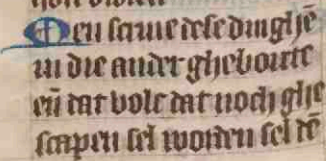 Men scriue dese dinghē
in die ander gheboirte
eñ dat volc dat noch ghe
scapen sel worden sel dē